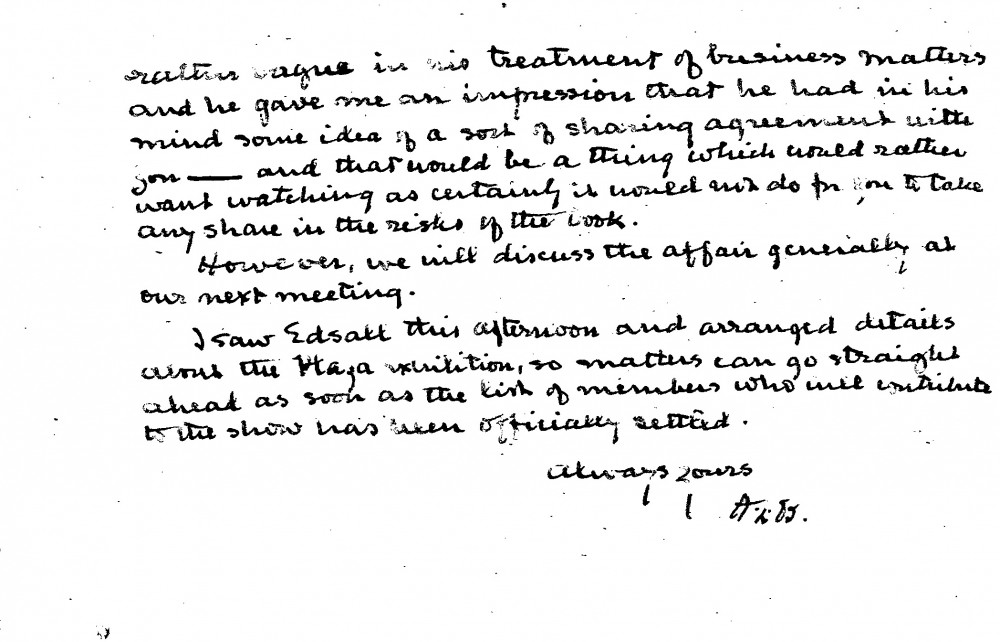 rather vague in his treatment of business matters
and he gave me an impression that he had in his
mind some idea of a sort of sharing agreement with
you — and that would be a thing which would rather
want watching as certainly it would not do for you to take
any share in the risks of the book.
However, we will discuss the affair generally at
our next meeting.
I saw Edsall this afternoon and arranged details
about the Plaza exhibition, so matters can go straight
ahead as soon as the list of members who will contribute
to the show has been officially settled.
Always yours